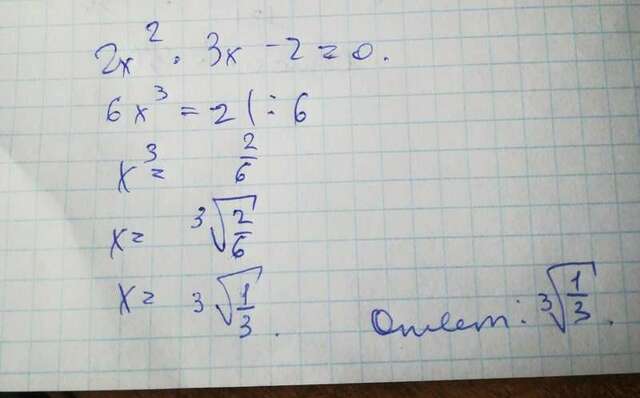 2x² · 3x - 2 = 0.
6x³ = 2 | : 6
x³ = 2/6
x = ³√(2/6)
x = ³√(1/3).
Ответ: ³√(1/3).